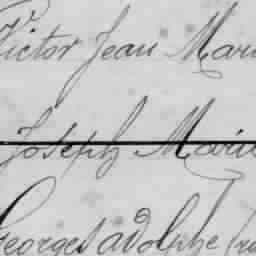 Victor Jean Mari
Joseph Marie
Georges adolphe